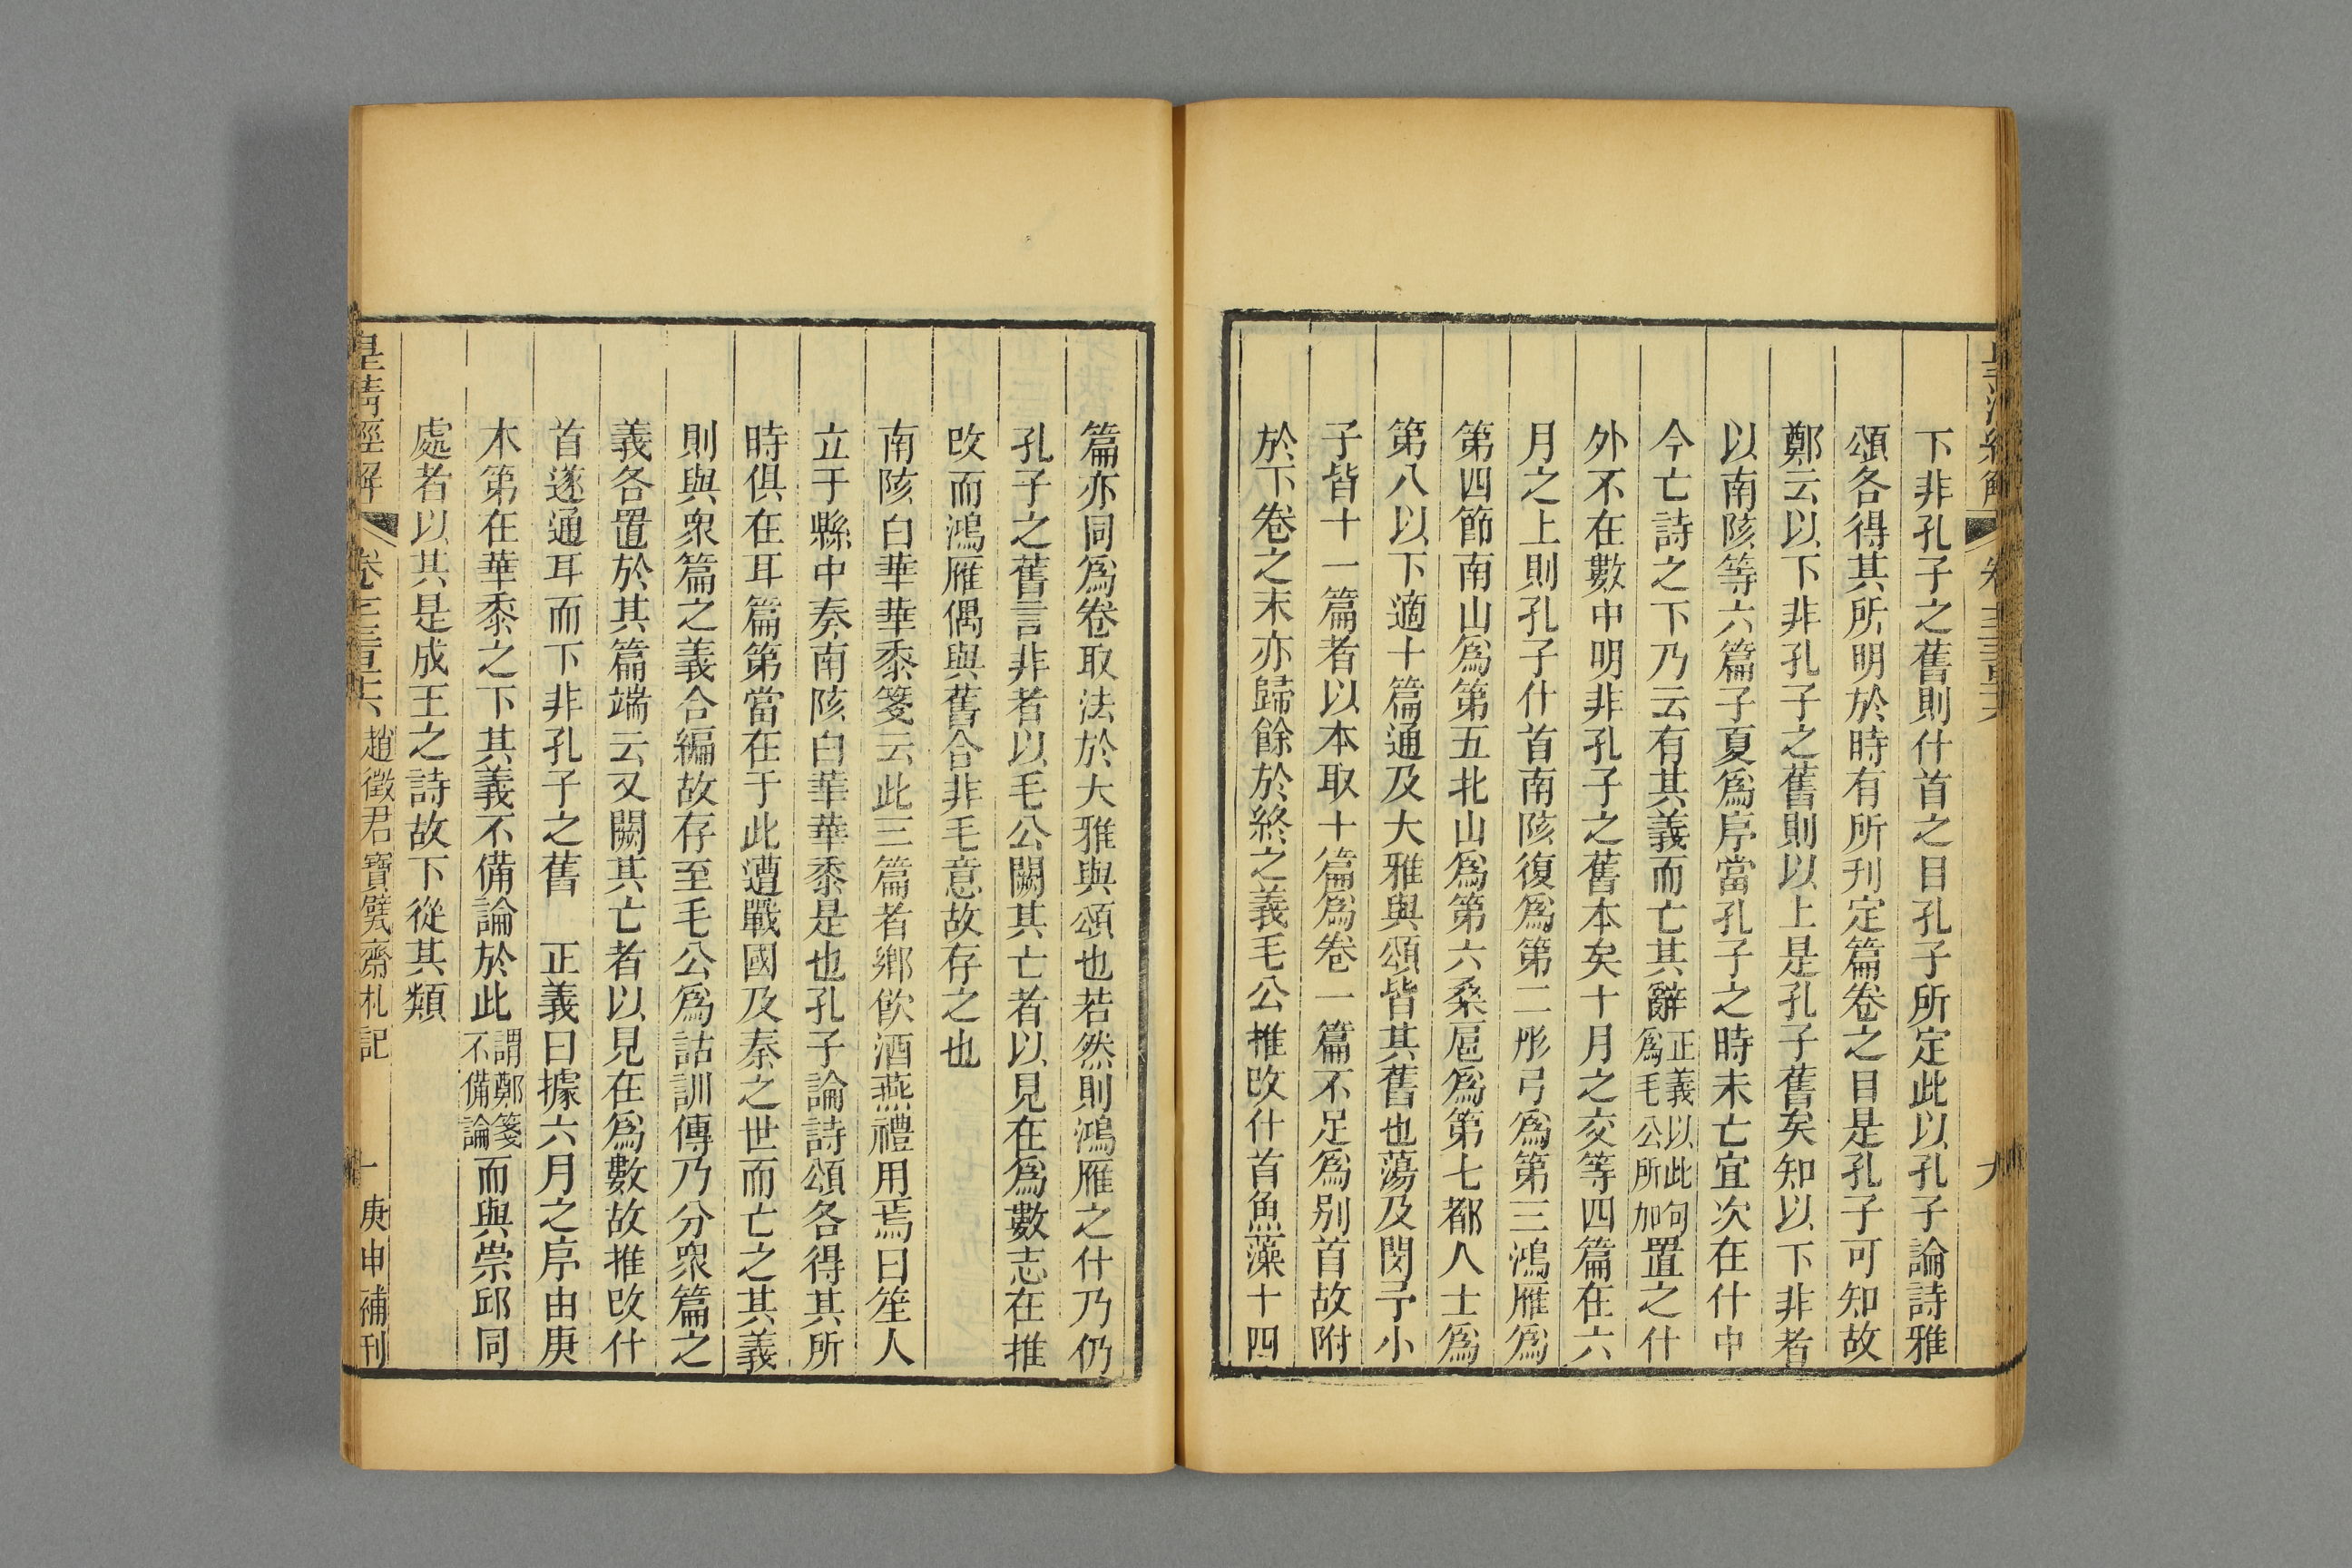 下非孔子之舊則什首之目孔子所定此以孔子論詩雅
頌各得其所明於時有所刊定篇卷之目是孔子可知故
鄭云以下非孔子之舊則以上是孔子舊矣知以下非者
以南陔等六篇子夏爲序當孔子之時未亡宜次在什中
今亡詩之下乃云有其義而亡其辭正義以此句爲毛公所加置之什
外不在數中明非孔子之舊本矣十月之交等四篇在六
月之上則孔子什首南陔復爲第二彤弓爲第三鴻雁爲
第四節南山爲第五北山爲第六桑扈爲第七都人士爲
第八以下適十篇通及大雅與頌皆其舊也蕩及閔予小
子皆十一篇者以本取十篇爲卷一篇不足爲別首故附
於下卷之末亦歸餘於終之義毛公推改什首魚藻十四
篇亦同爲卷取法於大雅與頌也若然則鴻雁之什乃仍
孔子之舊言非者以毛公闕其亡者以見在爲數志在推
改而鴻雁偶與舊合非毛意故存之也
南陔白華華黍箋云此三篇者鄉飲酒燕禮用焉曰笙人
立于縣中奏南陔白華華黍是也孔子論詩頌各得其所
時俱在耳篇第當在于此遭戰國及秦之世而亡之其義
則與衆篇之義合編故存至毛公爲詁訓傳乃分衆篇之
義各置於其篇端云又闕其亡者以見在爲數故推改什
首遂通耳而下非孔子之舊　正義曰據六月之序由庚
本第在華黍之下其義不備論於此謂鄭箋不備論而與崇邱同
處者以其是成王之詩故下從其類
皇清經解　卷三百三十六　趙徵君寶甓齋札記　一　庚申補刊